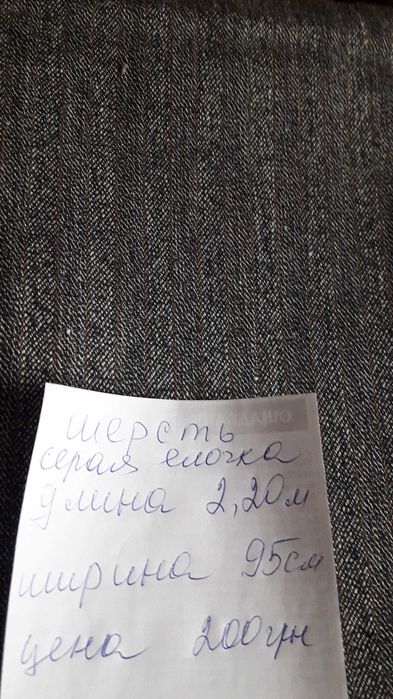 шерсть
серая елочка
длина 2,20м
ширина 95см
цена 200грн